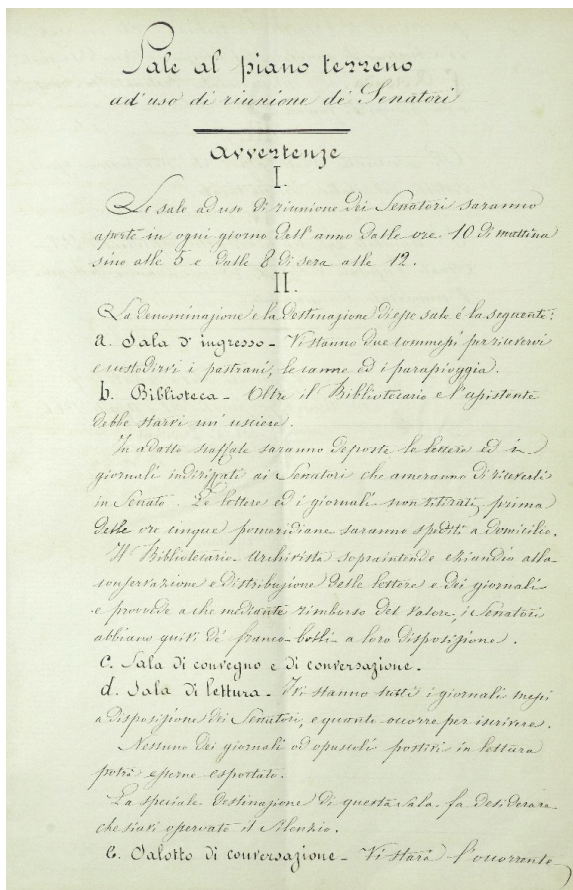 Sale al piano terreno
ad'uso di riunione de' Senatori
Avvertenze
I.
Le sale ad uso di riunione dei Senatori saranno
aperte in ogni giorno dell'anno dalle ore 10 di mattina
sino alle 5 e dalle 8 di sera alle 12.
II.
La denominazione e la destinazione d'esse sale é la seguente:
a. Sala d'ingresso - Vi stanno due commessi per ricevervi
e custodirvi i pastrani, le canne ed i parapioggia.
b. Biblioteca - Oltre il Bibliotecario e l'assistente
debbe starvi un' usciere.
In adatto scaffale saranno deposte le lettere ed i
giornali indirizzati ai Senatori che ameranno di riceverli
in Senato. Le lettere ed i giornali non ritirati prima
delle ore cinque pomeridiane saranno spediti a domicilio.
Il Bibliotecario-Archivista sopraintende eziandio alla
conservazione e distribuzione delle lettere e dei giornali
e provvede a che mediante rimborso del valore, i Senatori
abbiano quivi de' franco-bolli a loro disposizione.
c. Sala di convegno e di conversazione.
d. Sala di lettura - Ivi stanno tutti i giornali messi
a disposizione dei Senatori, e quanto occorre per iscrivere.
Nessuno dei giornali od opuscoli postivi in lettura
potrà esserne esportato.
La speciale destinazione di questa sala fa desiderare
che siavi osservato il silenzio.
e. Salotto di conversazione - Vi starà l'occorrente